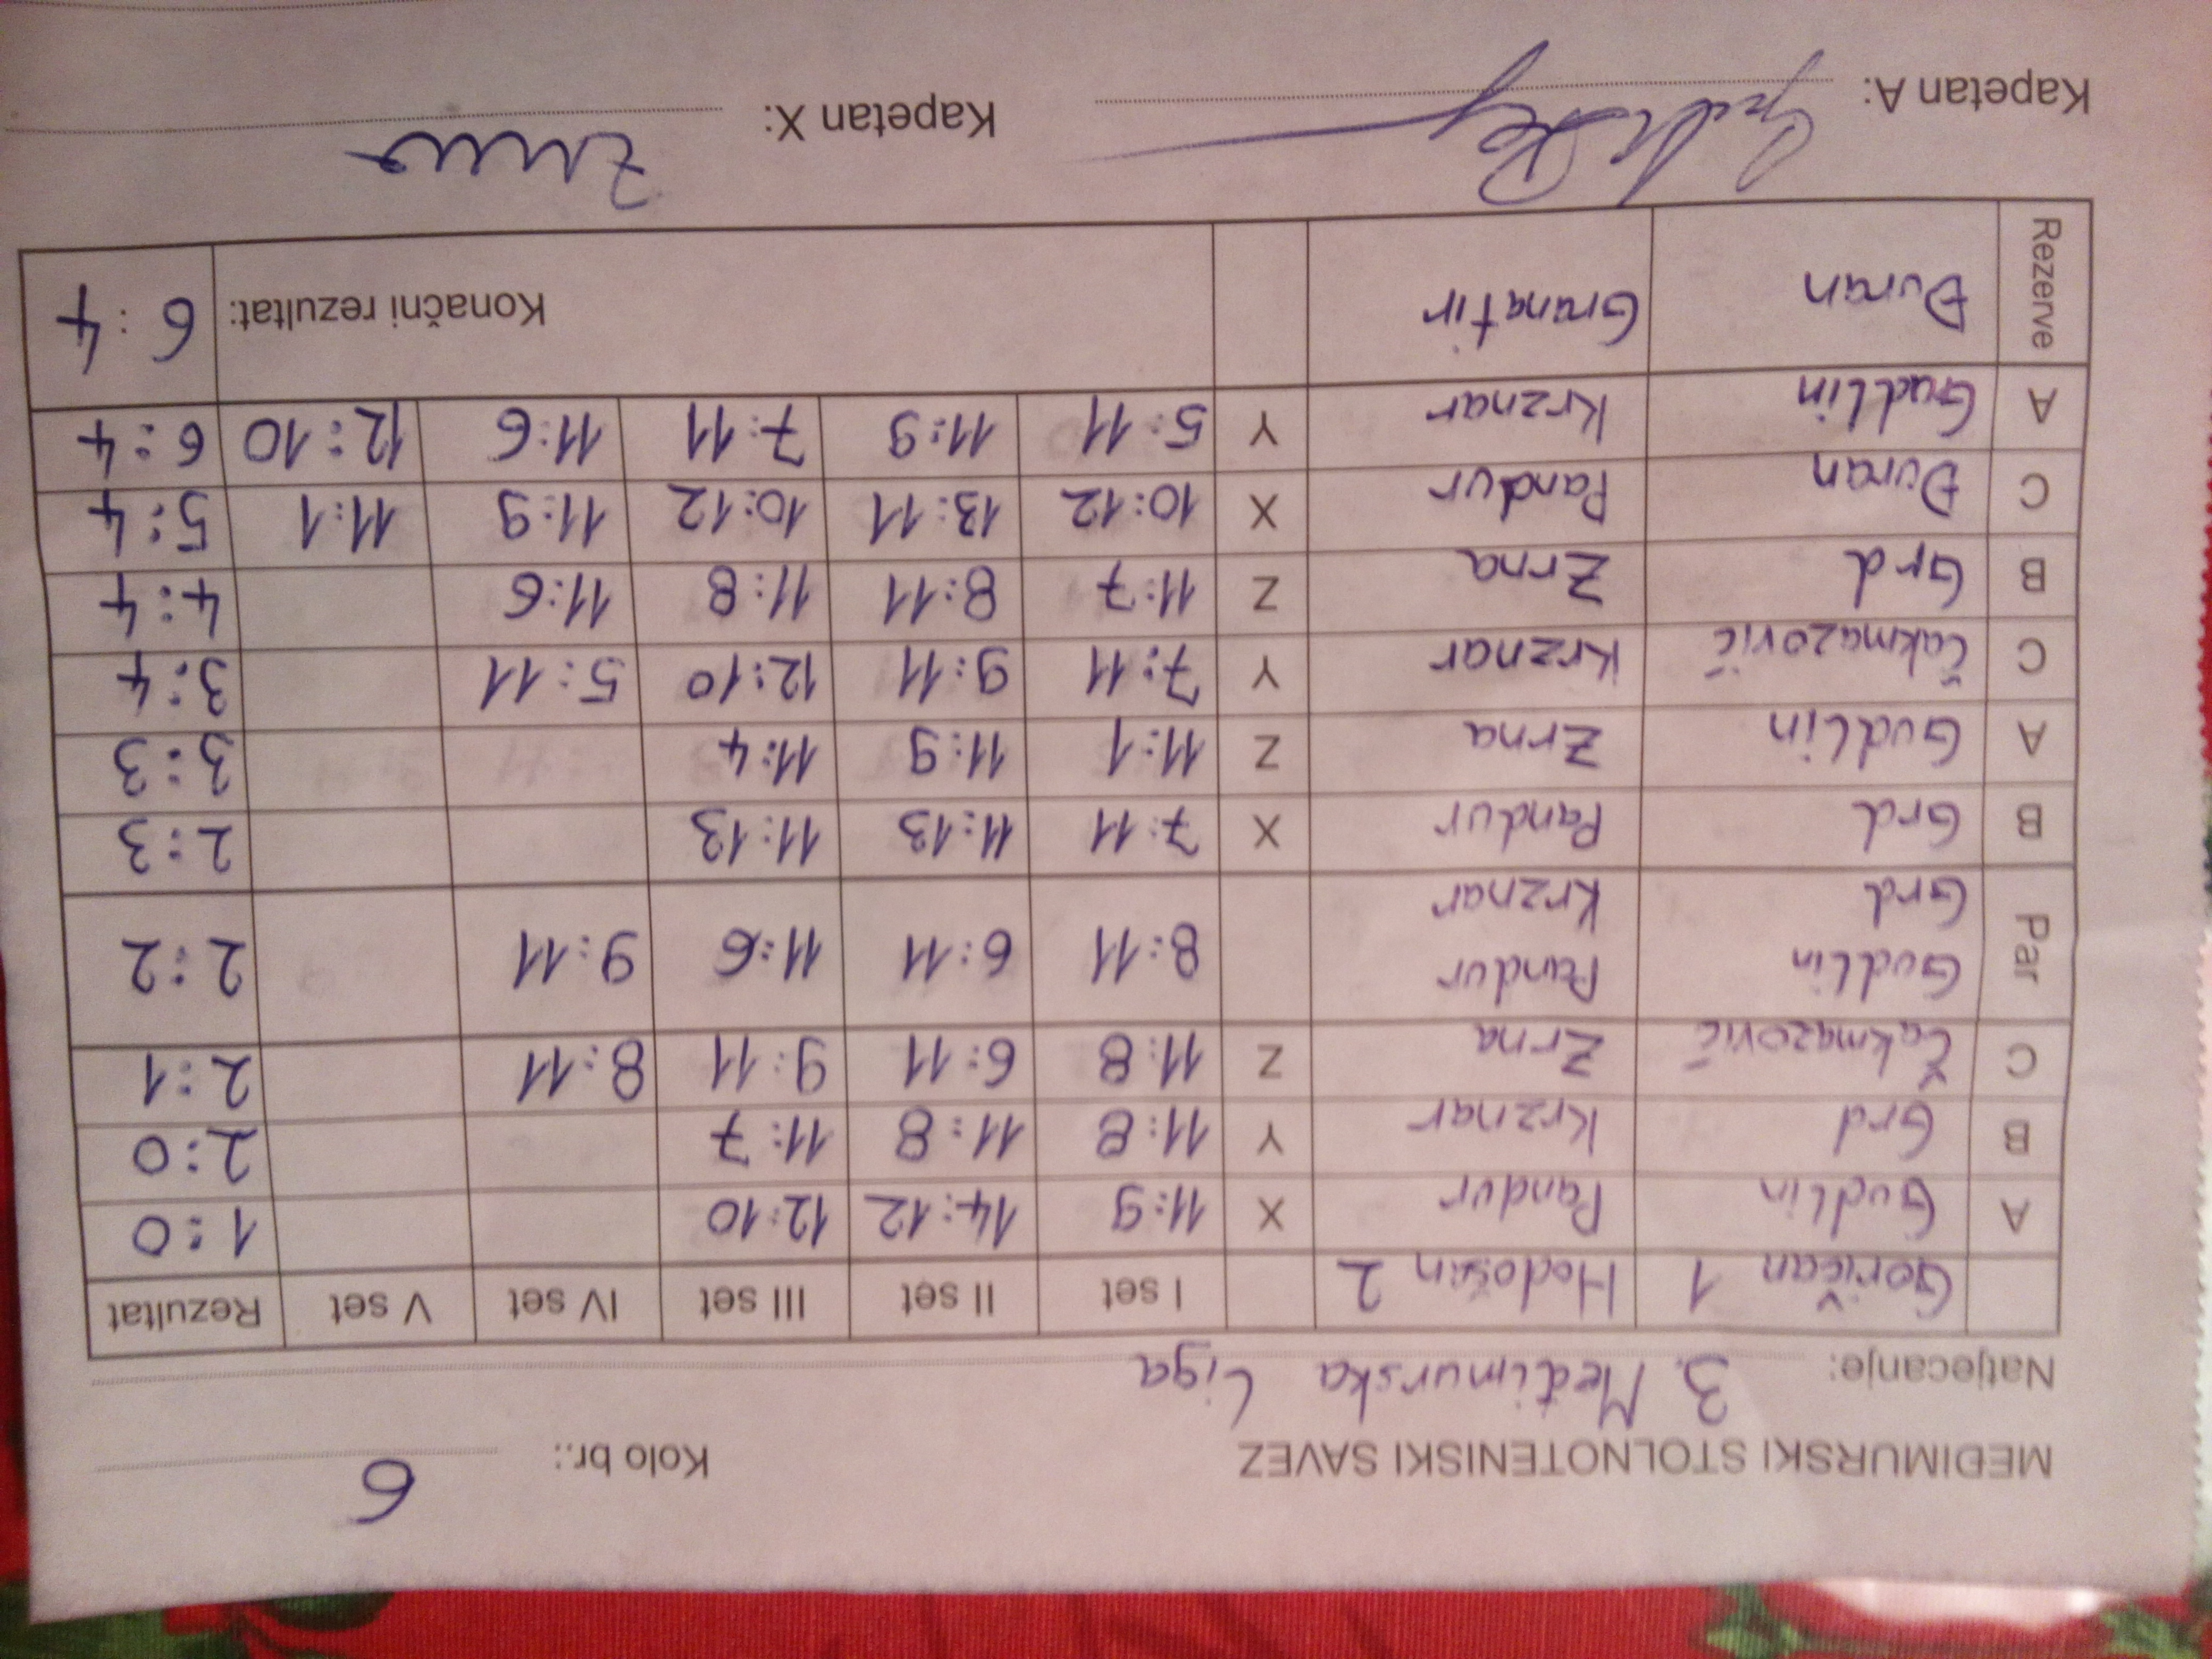 MEĐIMURSKI STOLNOTENISKI SAVEZ Kolo br.: 6
Natjecanje: 3. Međimurska liga
Goričan 1 Hodošan 2 I set II set III set IV set V set Rezultat
A Gudlin Pandur X 11:9 14:12 12:10 1:0
B Grd Krznar Y 11:8 11:8 11:7 2:0
C Čakmazović Zrna Z 11:8 6:11 9:11 8:11 2:1
Par Gudlin Pandur 8:11 6:11 11:6 9:11 2:2
Grd Krznar
B Grd Pandur X 7:11 11:13 11:13 2:3
A Gudlin Zrna Z 11:1 11:9 11:4 3:3
C Čakmazović Krznar Y 7:11 9:11 12:10 5:11 3:4
B Grd Zrna Z 11:7 8:11 11:8 11:6 4:4
C Đuran Pandur X 10:12 13:11 10:12 11:9 11:1 5:4
A Gudlin Krznar Y 5:11 11:9 7:11 11:6 12:10 6:4
Rezerve Đuran Granatir Konačni rezultat: 6:4
Kapetan A: Kapetan X: Zrna